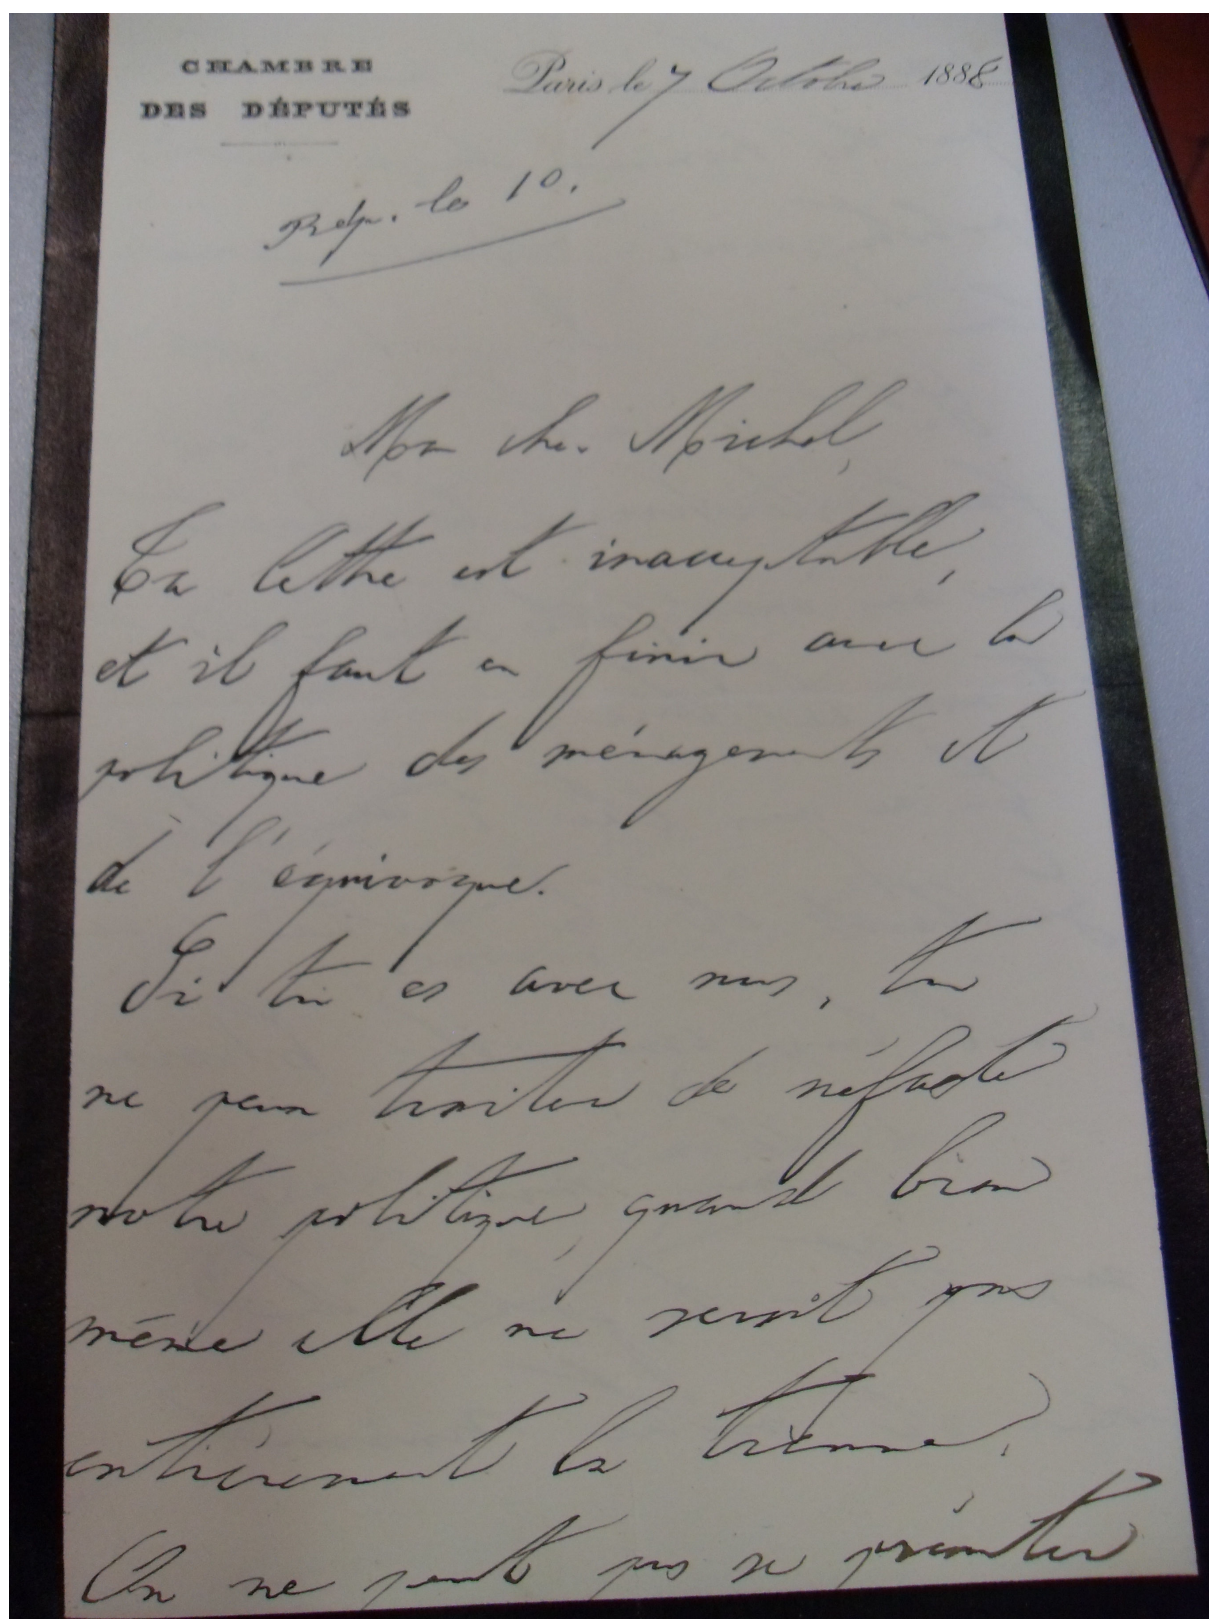 CHAMBRE
DES DÉPUTÉS
Paris le 7 Octobre 1888
Rép. le 10.
Mon cher Michel,
Ta lettre est inacceptable,
et il faut en finir avec la
politique des ménagements et
de l'équivoque.
Si tu es avec nous, tu
ne peux traiter de néfaste
notre politique, quand bien
même elle ne serait pas
entièrement la tienne.
On ne peut pas se présenter